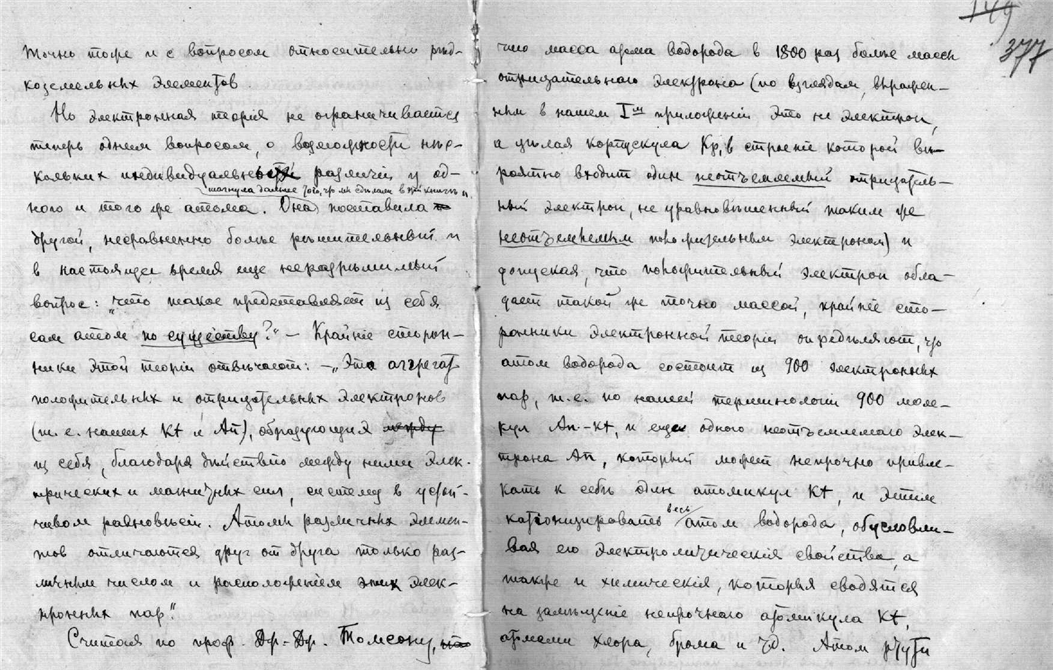 Точно тоже и с вопросом относительно ред-
коземельных элементов.
Но электронная теорія не ограничивается
теперь одним вопросом, о возможности нѣс-
кольких индивидуальных различій у од-
шагнула дальше того, что мы думали в
ного и того же атома. Она поставила
другой, несравненно болѣе рѣшительный и
в настоящее время еще неразрѣшимый
вопрос: „что такое представляет из себя
сам атом по существу?“ — Крайніе сторон-
ники этой теоріи отвѣчают: — „Это аггрегат
положительных и отрицательных электронов
(т.е. наших Kt и An), образующих между
из себя, благодаря дѣйствію между ними элек-
трических и магнитных сил, систему в устой-
чивом равновѣсіи. Атомы различных элемен-
тов отличаются друг от друга только раз-
личным числом и расположеніем этих элек-
тронных пар“.
Считая по проф. Дж.-Дж. Томсону, что
149
377
что масса атома водорода в 1800 раз больше массы
отрицательнаго электрона (по взглядам, выражен-
ным в нашем I-м приложеніи это не электрон,
а цѣлая корпускула, в строеніе которой вѣ-
роятно входит один неотъемлемый отрицатель-
ный электрон, не уравновѣшенный таким же
неотъемлемым положительным электроном) и
допуская, что положительный электрон обла-
дает такой же точно массой, крайніе сто-
ронники электронной теоріи опредѣляют, что
атом водорода состоит из 900 электронных
пар, т.е. по нашей терминологіи 900 моле-
кул An-Kt, и еще одного неотъемлемаго элек-
трона An, который может непрочно привле-
кать к себѣ один атомикул Kt, и этим
катіонизировать весь атом водорода, обусловли-
вая его электролитическія свойства, а
также и химическія, которыя сводятся
на замѣщеніе непрочнаго атомикула Kt,
атомами хлора, брома и т.д. Атом ртути